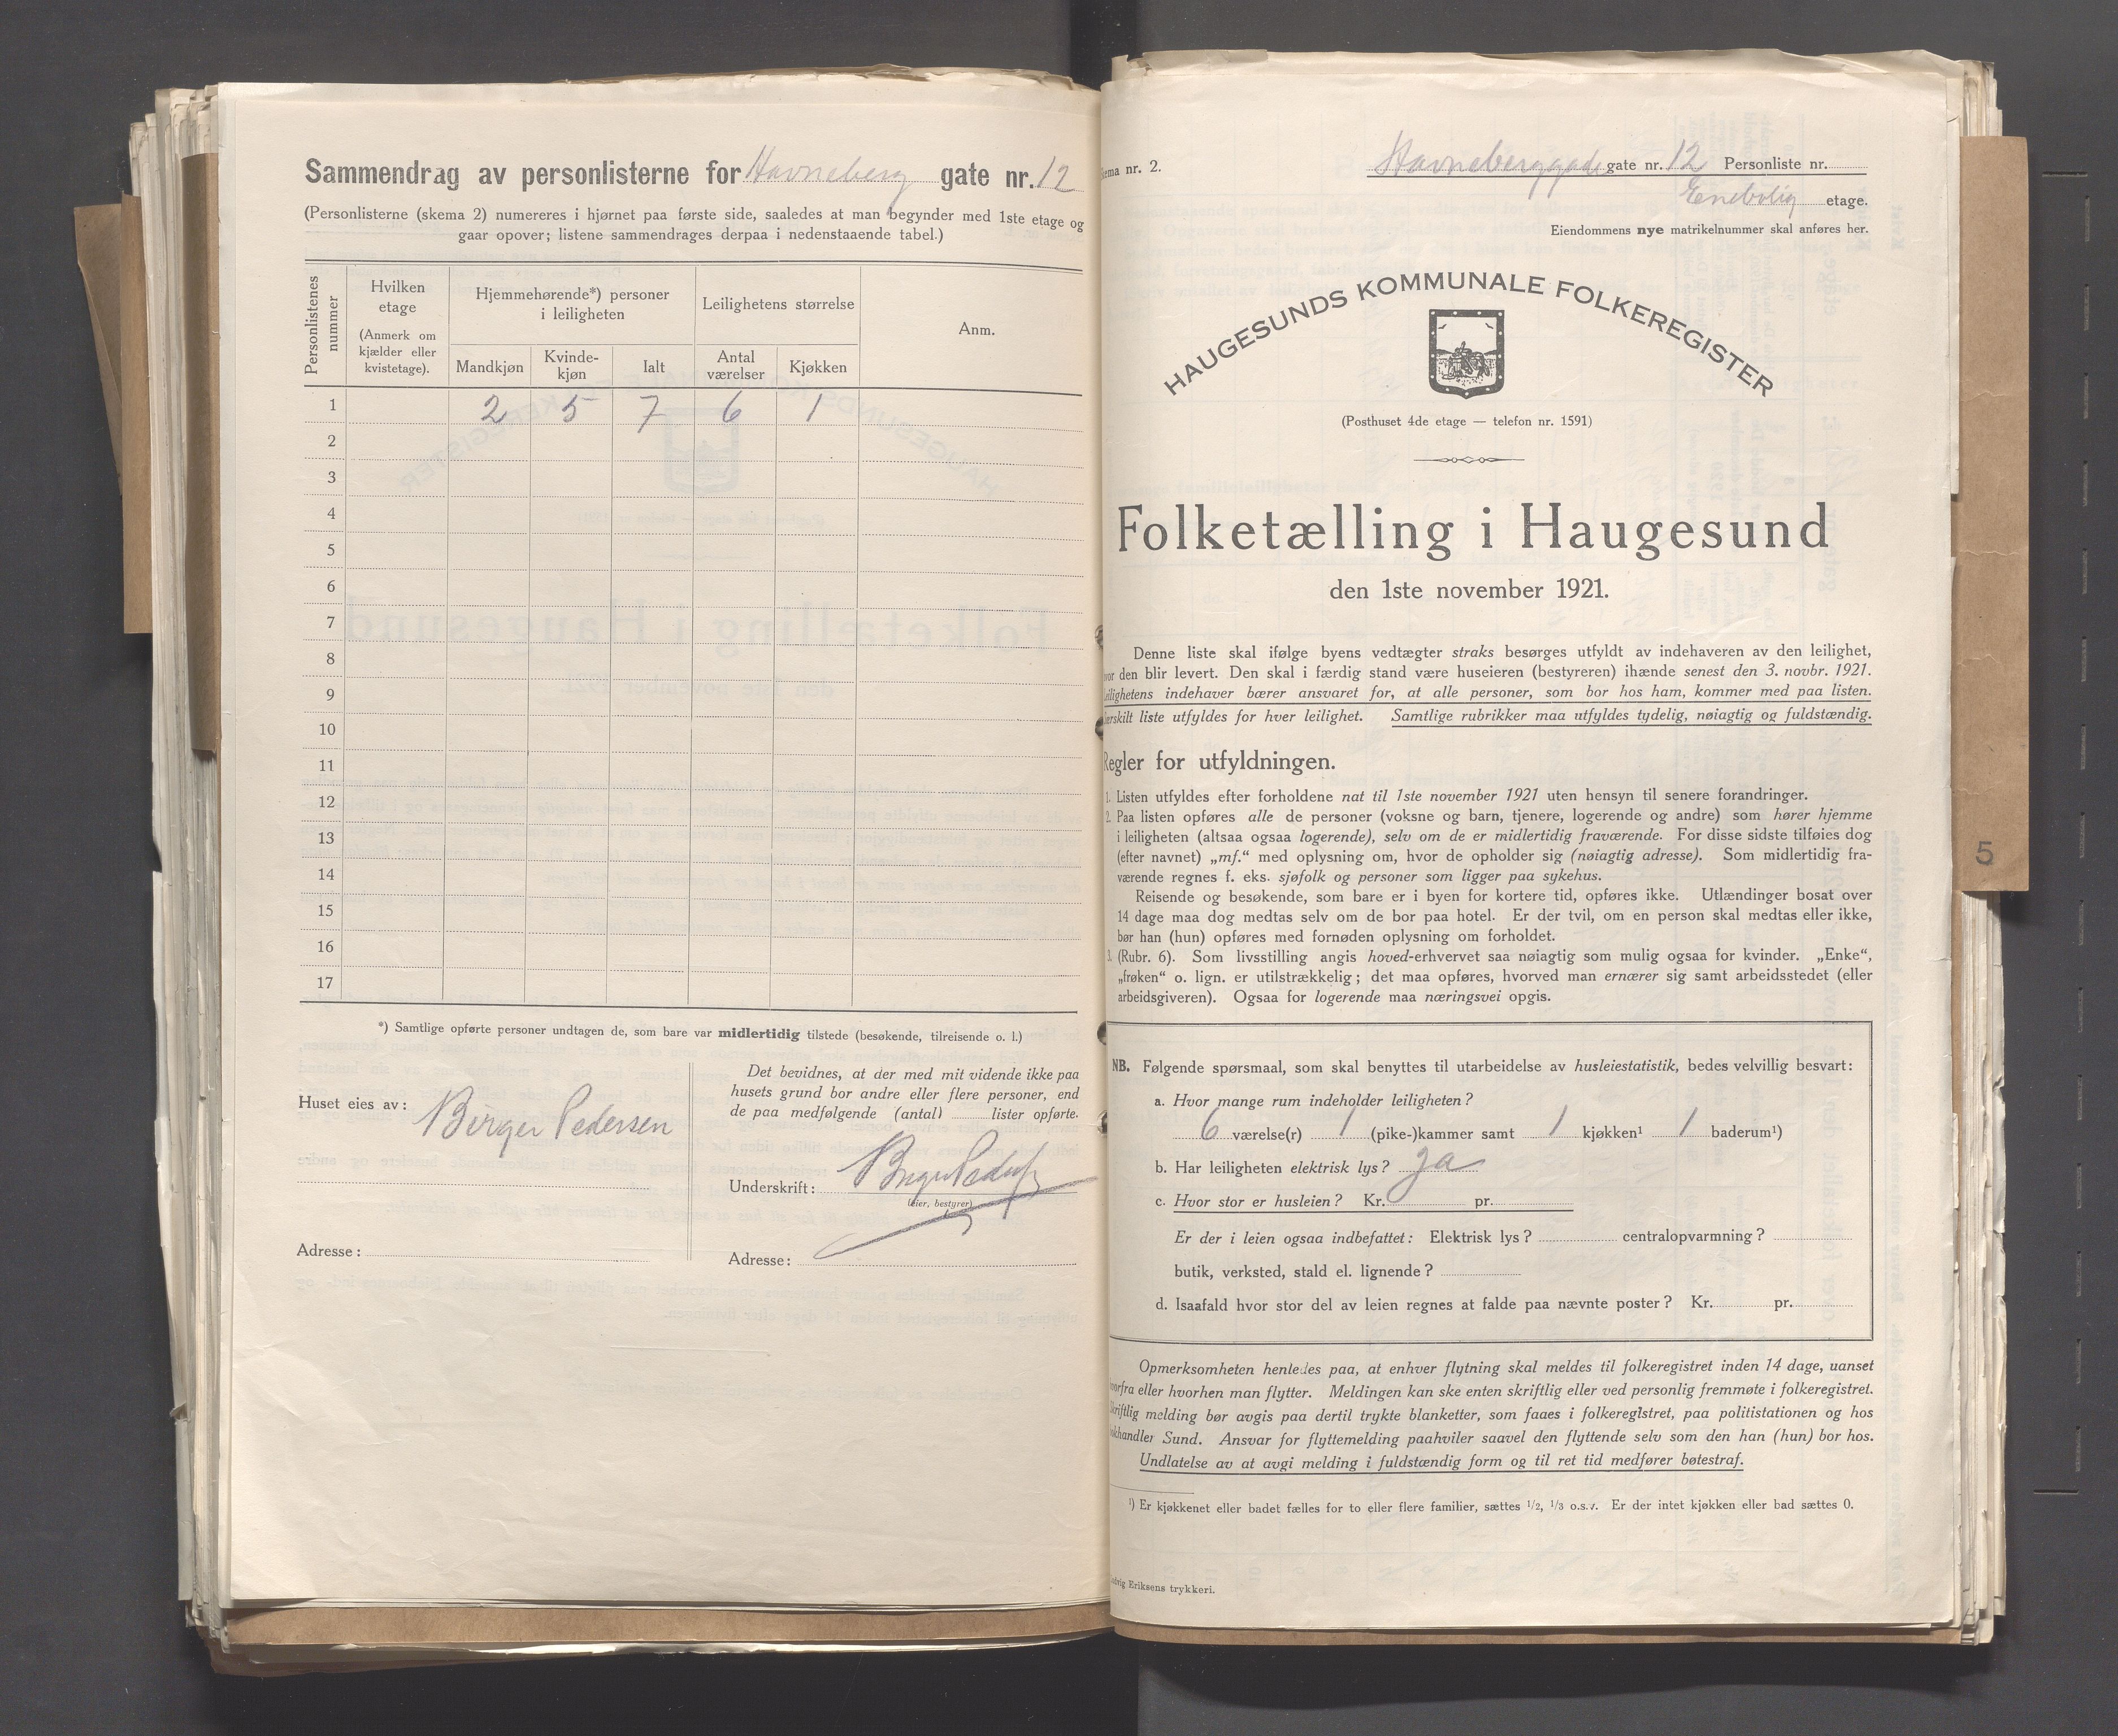 Sammendrag av personlisterne for Havneberg gate nr. 12
(Personlisterne (skema 2) numereres i hjørnet paa første side, saaledes at man begynder med 1ste etage og
gaar opover; listene sammendrages derpaa i nedenstaaende tabel.)
Personlistenes nummer
Hvilken etage
(Anmerk om kjælder eller kvistetage).
Hjemmehørende*) personer i leiligheten
Leilighetens størrelse
Anm.
Mandkjøn
Kvindekjøn
Ialt
Antal værelser
Kjøkken
1 2 5 7 6 1
2
3
4
5
6
7
8
9
10
11
12
13
14
15
16
17
*) Samtlige opførte personer undtagen de, som bare var midlertidig tilstede (besøkende, tilreisende o. l.)
Huset eies av: Birger Pedersen
Adresse:
Det bevidnes, at der med mit vidende ikke paa
husets grund bor andre eller flere personer, end
de paa medfølgende (antal) lister opførte.
Underskrift: Birger Pedersen
(eier, bestyrer)
Adresse:
Skema nr. 2.
Havneberggade gate nr. 12 Personliste nr.
Enebolig etage.
Eiendommens nye matrikelnummer skal anføres her.
HAUGESUNDS KOMMUNALE FOLKEREGISTER
(Posthuset 4de etage — telefon nr. 1591)
Folketælling i Haugesund
den 1ste november 1921.
Denne liste skal ifølge byens vedtægter straks besørges utfyldt av indehaveren av den leilighet,
hvor den blir levert. Den skal i færdig stand være huseieren (bestyreren) ihænde senest den 3. novbr. 1921.
Leilighetens indehaver bærer ansvaret for, at alle personer, som bor hos ham, kommer med paa listen.
Særskilt liste utfyldes for hver leilighet. Samtlige rubrikker maa utfyldes tydelig, nøiagtig og fuldstændig.
Regler for utfyldningen.
1. Listen utfyldes efter forholdene nat til 1ste november 1921 uten hensyn til senere forandringer.
2. Paa listen opføres alle de personer (voksne og barn, tjenere, logerende og andre) som hører hjemme
i leiligheten (altsaa ogsaa logerende), selv om de er midlertidig fraværende. For disse sidste tilføies dog
(efter navnet) „mf.“ med oplysning om, hvor de opholder sig (nøiagtig adresse). Som midlertidig fra-
værende regnes f. eks. sjøfolk og personer som ligger paa sykehus.
Reisende og besøkende, som bare er i byen for kortere tid, opføres ikke. Utlændinger bosat over
14 dage maa dog medtas selv om de bor paa hotel. Er der tvil, om en person skal medtas eller ikke,
bør han (hun) opføres med fornøden oplysning om forholdet.
3. (Rubr. 6). Som livsstilling angis hoved-erhvervet saa nøiagtig som mulig ogsaa for kvinder. „Enke“,
„frøken“ o. lign. er utilstrækkelig; det maa opføres, hvorved man ernærer sig samt arbeidsstedet (eller
arbeidsgiveren). Ogsaa for logerende maa næringsvei opgis.
NB. Følgende spørsmaal, som skal benyttes til utarbeidelse av husleiestatistik, bedes velvillig besvart:
a. Hvor mange rum indeholder leiligheten?
6 værelse(r) 1 (pike-)kammer samt 1 kjøkken¹ 1 baderum¹)
b. Har leiligheten elektrisk lys? ja
c. Hvor stor er husleien? Kr. pr.
Er der i leien ogsaa indbefattet: Elektrisk lys? centralopvarmning?
butik, verksted, stald el. lignende?
d. Isaafald hvor stor del av leien regnes at falde paa nævnte poster? Kr. pr.
Opmerksomheten henledes paa, at enhver flytning skal meldes til folkeregistret inden 14 dage, uanset
hvorfra eller hvorhen man flytter. Meldingen kan ske enten skriftlig eller ved personlig fremmøte i folkeregistret.
Skriftlig melding bør avgis paa dertil trykte blanketter, som faaes i folkeregistret, paa politistationen og hos
bokhandler Sund. Ansvar for flyttemelding paahviler saavel den flyttende selv som den han (hun) bor hos.
Undlatelse av at avgi melding i fuldstændig form og til ret tid medfører bøtestraf.
¹) Er kjøkkenet eller badet fælles for to eller flere familier, sættes 1/2, 1/3 o.s.v. Er der intet kjøkken eller bad sættes 0.
Ludvig Eriksens trykkeri.
5